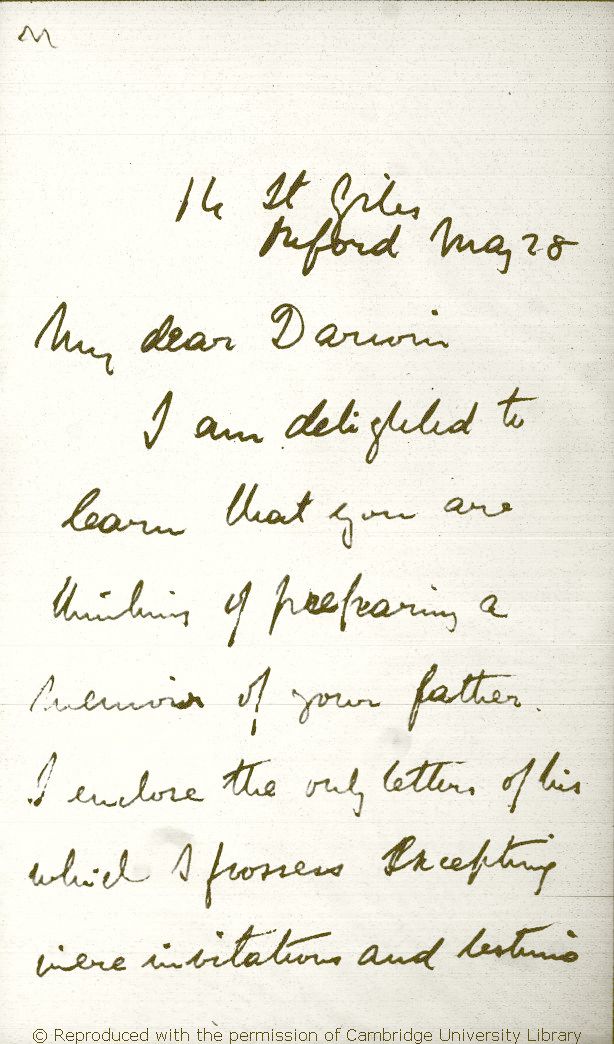 14 St Giles
Oxford May 28
My dear Darwin
I am delighted to
learn that you are
thinking of preparing a
memoir of your father.
I enclose the only letters of his
which I possess excepting
mere invitations and testimo
© Reproduced with the permission of Cambridge University Library